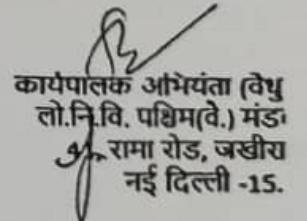 कार्यपालक अभियंता (वैधु
लो.नि.वि. पश्चिम(वै.) मंड
रामा रोड, जखीरा
नई दिल्ली -15.